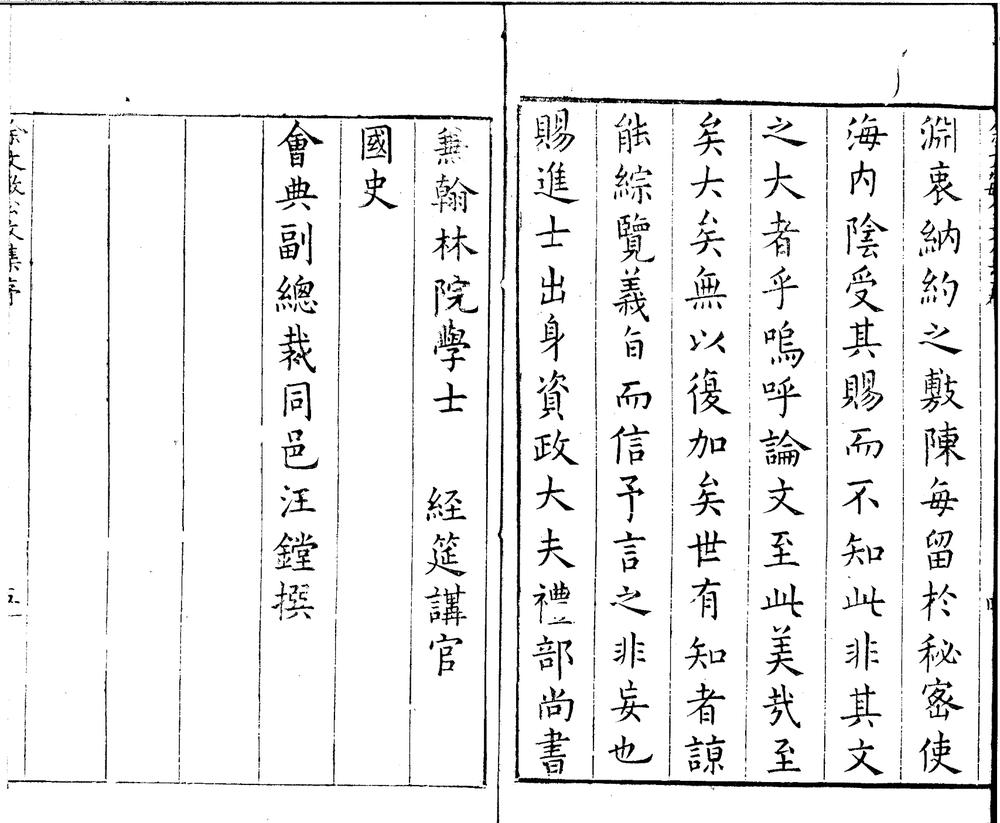 淵衷納約之敷陳每留於秘密使
海内陰受其賜而不知此非其文
之大者乎嗚呼論文至此美㢤至
矣大矣無以復加矣世有知者諒
能綜覽義旨而信予言之非妄也
賜進士出身資政大夫禮部尚書
兼翰林院學士　經筵講官
國史
會典副總裁同邑汪鏜撰
徐文敏公文集序
五